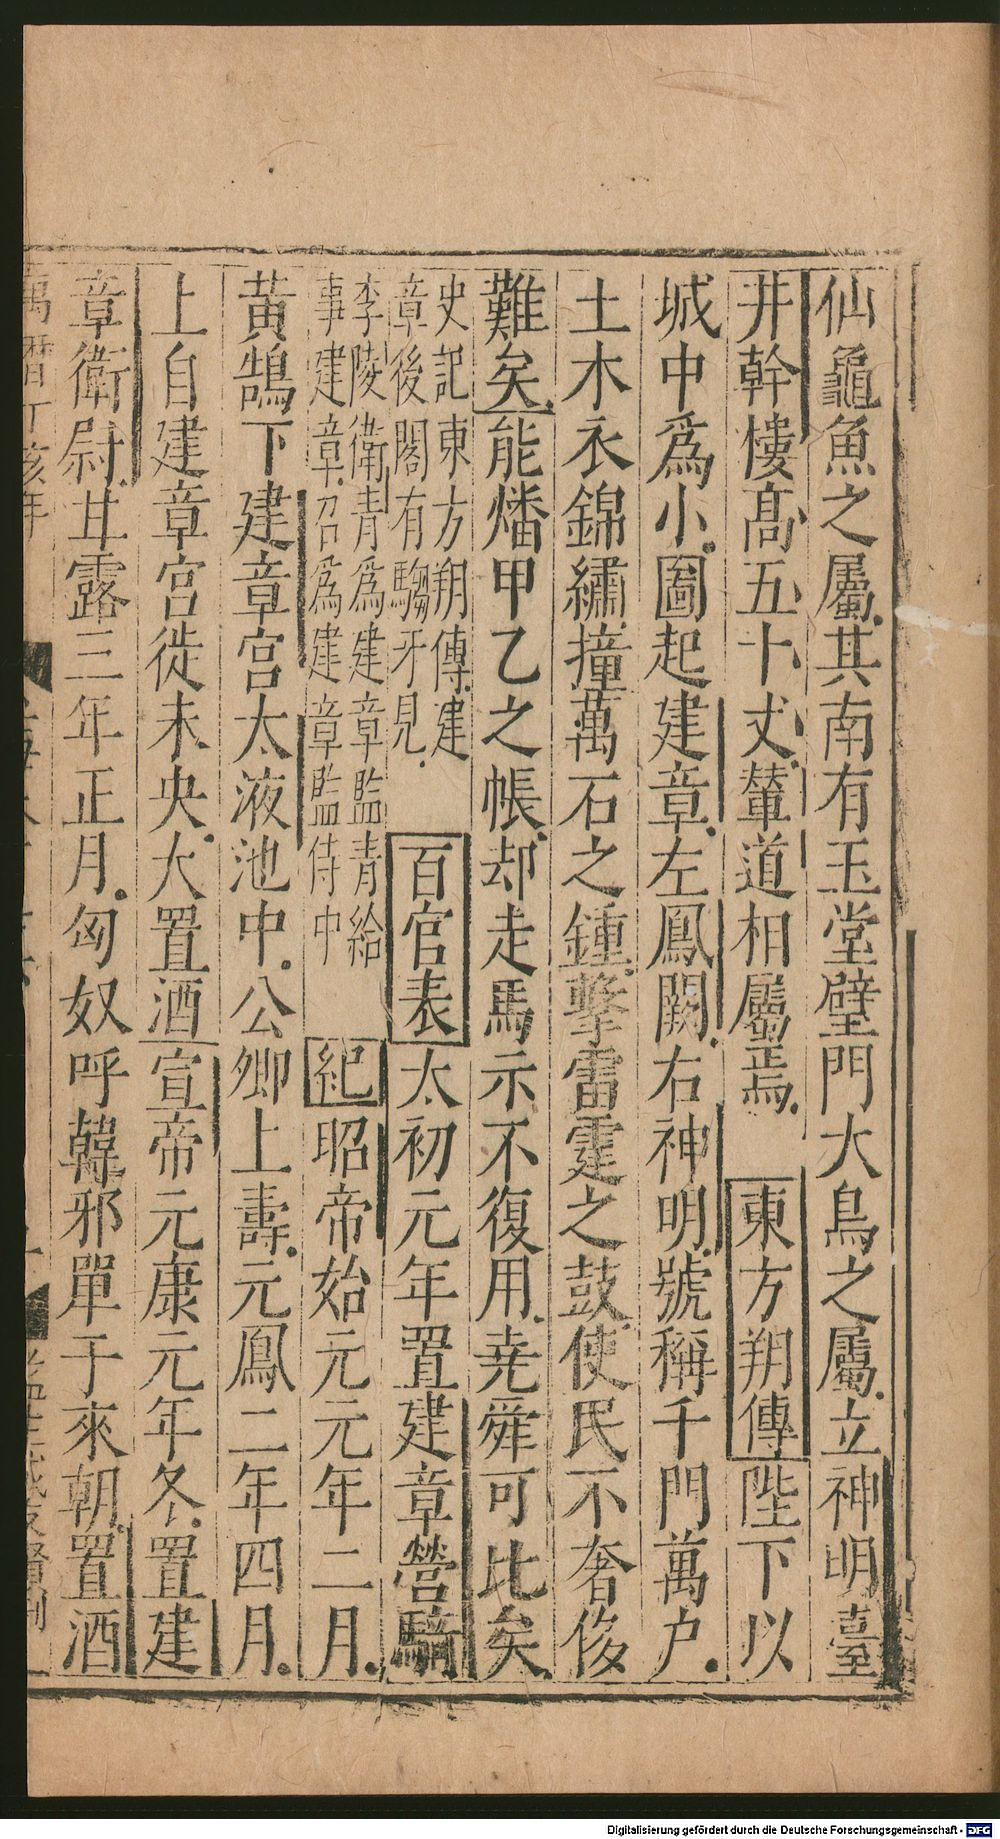 仙龜魚之屬其南有玉堂璧門大鳥之屬立神明臺
井幹樓高五十丈輦道相屬焉 東方朔傳陛下以
城中爲小圖起建章左鳳闕右神明號稱千門萬户
土木衣錦繡撞萬石之鍾擊雷霆之鼓使民不奢侈
難矣能燔甲乙之帳却走馬示不復用堯舜可比矣
史記東方朔傳建
章後閣有騶牙見
百官表太初元年置建章營騎
李陵衛青爲建章監青給
事建章召爲建章監侍中
紀昭帝始元元年二月
黃鵠下建章宮太液池中公卿上壽元鳳二年四月
上自建章宮徙未央大置酒宣帝元康元年冬置建
章衛尉甘露三年正月匈奴呼韓邪單于來朝置酒
萬曆丁亥年
監生戚友賢刊
Digitalisierung gefördert durch die Deutsche Forschungsgemeinschaft - DFG